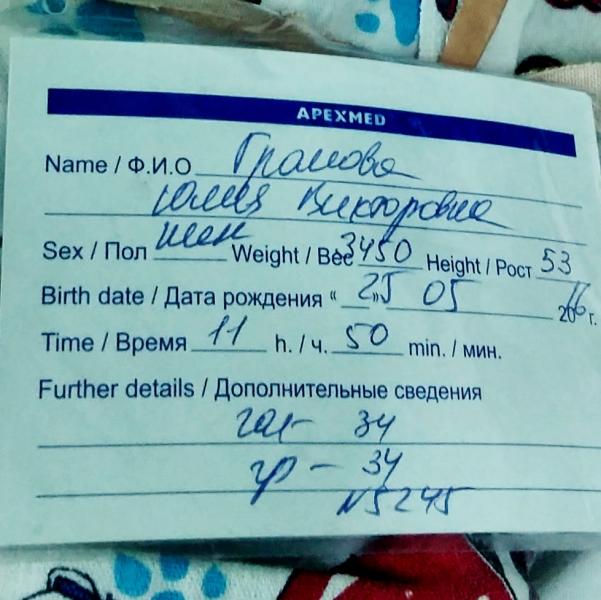 APEXMED
Name / Ф.И.О Громова
Юлия Викторовна
Sex / Пол жен Weight / Вес 3450 Height / Рост 53
Birth date / Дата рождения « 25 » 05 2016 г.
Time / Время 11 h. / ч. 50 min. / мин.
Further details / Дополнительные сведения
гол - 34
гр - 34
N5245